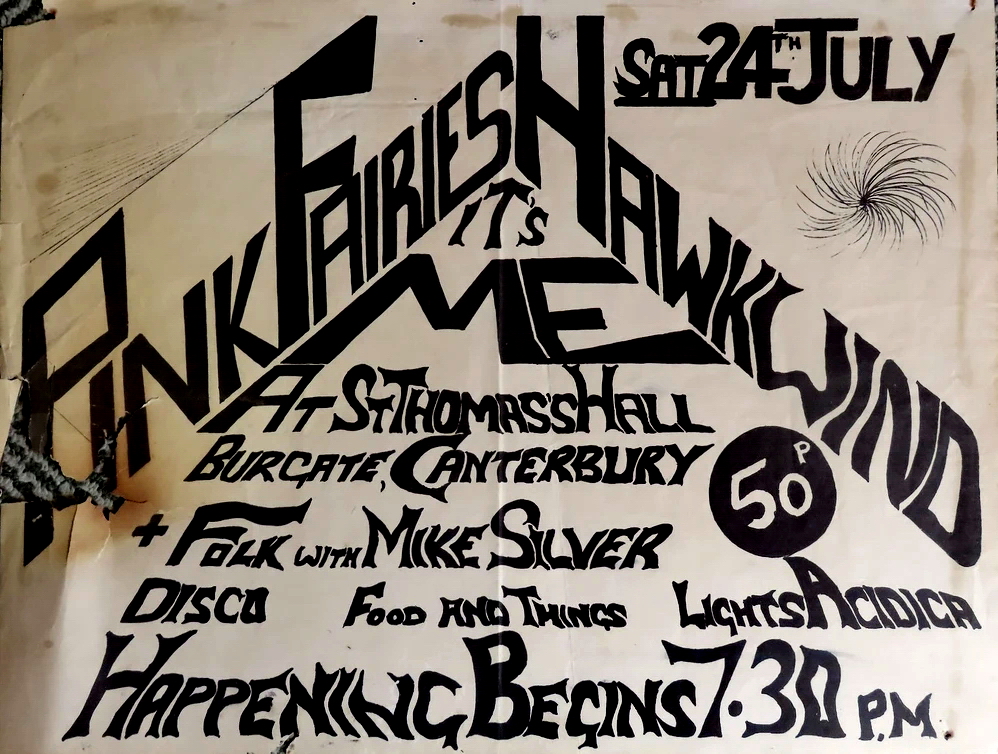 SAT 24TH JULY
PINK FAIRIES HAWKWIND
IT'S
ME
AT ST THOMAS'S HALL
BURGATE, CANTERBURY
50P
+ FOLK WITH MIKE SILVER
DISCO FOOD AND THINGS LIGHTS ACIDICA
HAPPENING BEGINS 7.30 P.M.